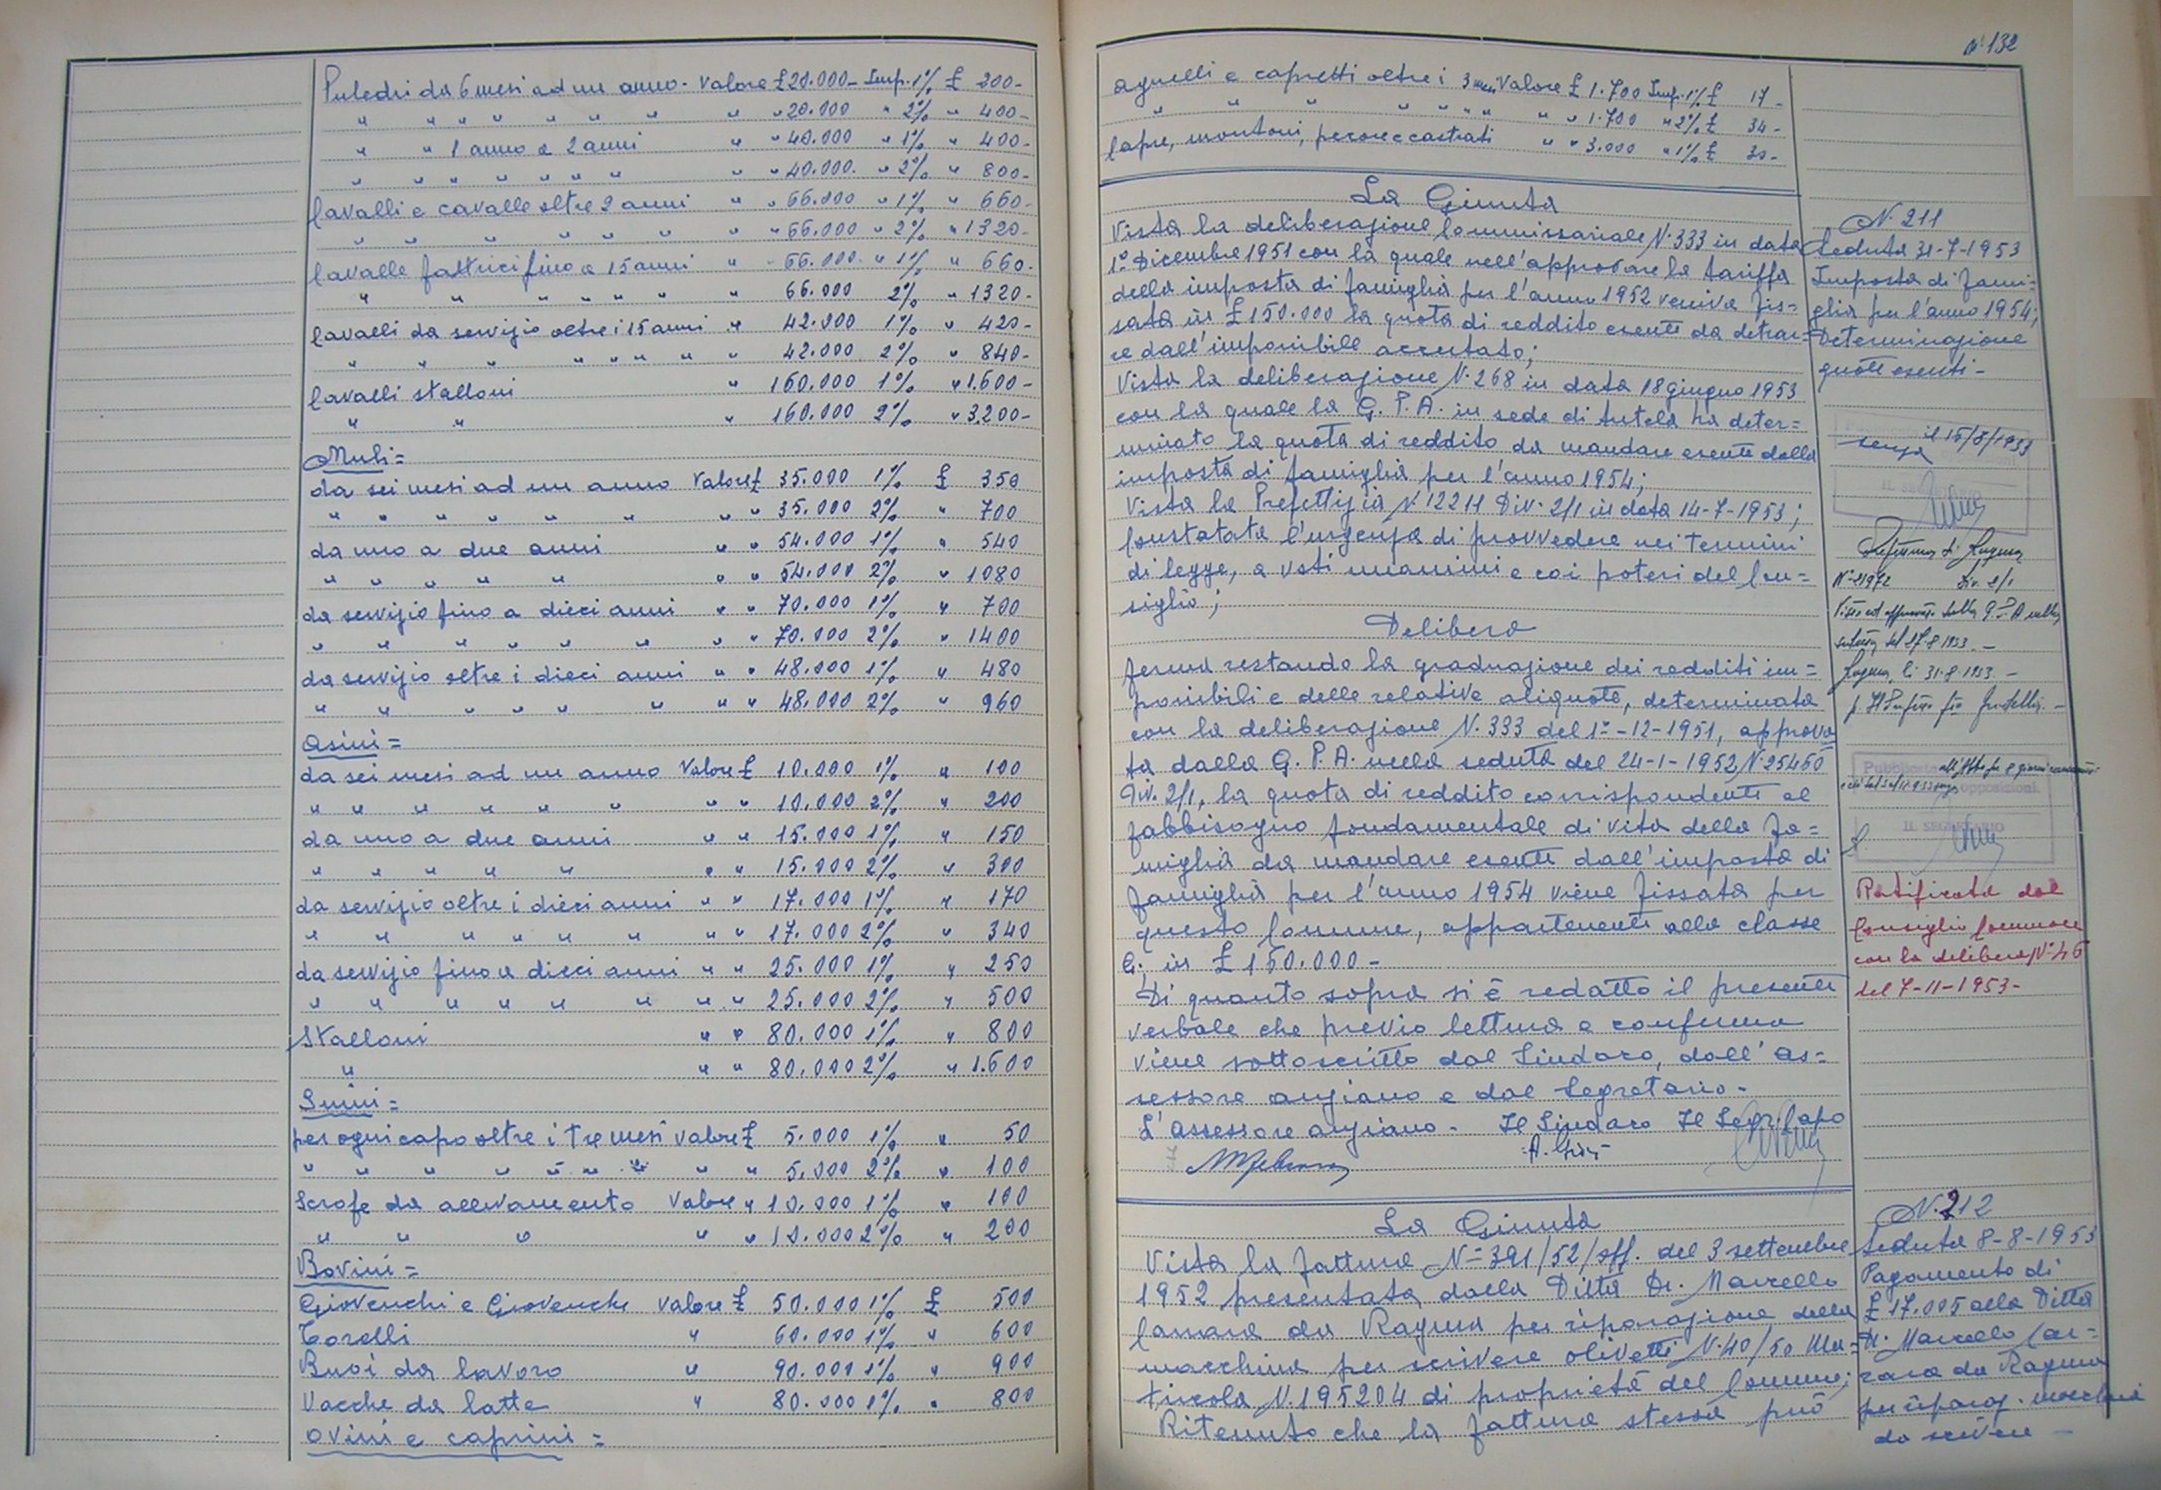 Puledri da 6 mesi ad un anno - Valore £ 20.000 - Imp. 1% £ 200 -
" " " " " " " " " 20.000 " 2% " 400 -
" " 1 anno a 2 anni " " 40.000 " 1% " 400 -
" " " " " " " " " 40.000 " 2% " 800 -
Cavalli e cavalle oltre 2 anni " " 66.000 " 1% " 660 -
" " " " " " " " 66.000 " 2% " 1320 -
Cavalle fattrici fino a 15 anni " " 66.000 " 1% " 660 -
" " " " " " " " 66.000 2% " 1320 -
Cavalli da servizio oltre i 15 anni " 42.000 1% " 420 -
" " " " " " " " 42.000 2% " 840 -
Cavalli stalloni " 160.000 1% " 1.600 -
" " " 160.000 2% " 3.200 -
Muli =
da sei mesi ad un anno Valore £ 35.000 1% £ 350
" " " " " " " " 35.000 2% " 700
da uno a due anni " " 54.000 1% " 540
" " " " " " " 54.000 2% " 1080
da servizio fino a dieci anni " " 70.000 1% " 700
" " " " " " " " 70.000 2% " 1400
da servizio oltre i dieci anni " " 48.000 1% " 480
" " " " " " " " 48.000 2% " 960
Asini =
da sei mesi ad un anno Valore £ 10.000 1% " 100
" " " " " " " " 10.000 2% " 200
da uno a due anni " " 15.000 1% " 150
" " " " " " " 15.000 2% " 300
da servizio oltre i dieci anni " " 17.000 1% " 170
" " " " " " " " 17.000 2% " 340
da servizio fino a dieci anni " " 25.000 1% " 250
" " " " " " " " 25.000 2% " 500
Stalloni " " 80.000 1% " 800
" " " 80.000 2% " 1.600
Suini =
per ogni capo oltre i tre mesi Valore £ 5.000 1% " 50
" " " " " " " " " 5.000 2% " 100
Scrofe da allevamento Valore " 10.000 1% " 100
" " " " " 10.000 2% " 200
Bovini =
Giovenchi e Giovenche Valore £ 50.000 1% £ 500
Torelli " 60.000 1% " 600
Buoi da lavoro " 90.000 1% " 900
Vacche da latte " 80.000 1% " 800
Ovini e caprini =
132
agnelli e capretti oltre i 3 mesi Valore £ 1.700 Imp. 1% £ 17 -
" " " " " " " " " 1.700 " 2% £ 34 -
Capre, montoni, pecore e castrati " " 3.000 " 1% £ 30 -
La Giunta
Vista la deliberazione Commissariale N. 333 in data
1° Dicembre 1951 con la quale nell'approvare la tariffa
della imposta di famiglia per l'anno 1952 veniva fis=
sata in £ 150.000 la quota di reddito esente da detrar=
re dall'imponibile accertato;
Vista la deliberazione N. 268 in data 18 giugno 1953
con la quale la G. P. A. in sede di tutela ha deter=
minato la quota di reddito da mandare esente dalla
imposta di famiglia per l'anno 1954;
Vista la Prefettizia N 12211 Div. 2/1 in data 14-7-1953;
Constatata l'urgenza di provvedere nei termini
di legge, a voti unanimi e coi poteri del Con=
siglio;
Delibera
ferma restando la graduazione dei redditi im=
ponibili e delle relative aliquote, determinata
con la deliberazione N. 333 del 1°-12-1951, approva
ta dalla G. P. A. nella seduta del 24-1-1952 N. 25460
Div. 2/1, la quota di reddito corrispondente al
fabbisogno fondamentale di vita della fa=
miglia da mandare esente dall'imposta di
famiglia per l'anno 1954 viene fissata per
questo Comune, appartenente alla classe
G. in £ 150.000 -
Di quanto sopra si è redatto il presente
verbale che previo lettura e conferma
viene sottoscritto dal Sindaco, dall'As=
sessore anziano e dal Segretario -
L'assessore anziano - Il Sindaco Il Segr. Capo
N. 211
Seduta 31-7-1953
Imposta di fami=
glia per l'anno 1954;
Determinazione
quote esenti -
il 15/8/1953
Prefettura di Ragusa
N° 21972 Div. 2/1
Visto ed approvato dalla G.P.A. nella
seduta del 27-8-1953 -
Ragusa, li 31-8-1953 -
p. Il Prefetto
Pubblicata
opposizioni.
IL SEGRETARIO
Ratificata dal
Consiglio Comunale
con la delibera N° 46
del 7-11-1953 -
La Giunta
Vista la fattura N= 391/52/off. del 3 settembre
1952 presentata dalla Ditta Dr. Marcello
Carrara da Ragusa per riparazione della
macchina per scrivere olivetti N. 40/50 Ma=
tricola N. 195204 di proprietà del Comune;
Ritenuto che la fattura stessa può
N. 212
Seduta 8-8-1953
Pagamento di
£ 17.005 alla Ditta
Dr. Marcello Car=
rara da Ragusa
per riparaz. macchina
da scrivere -